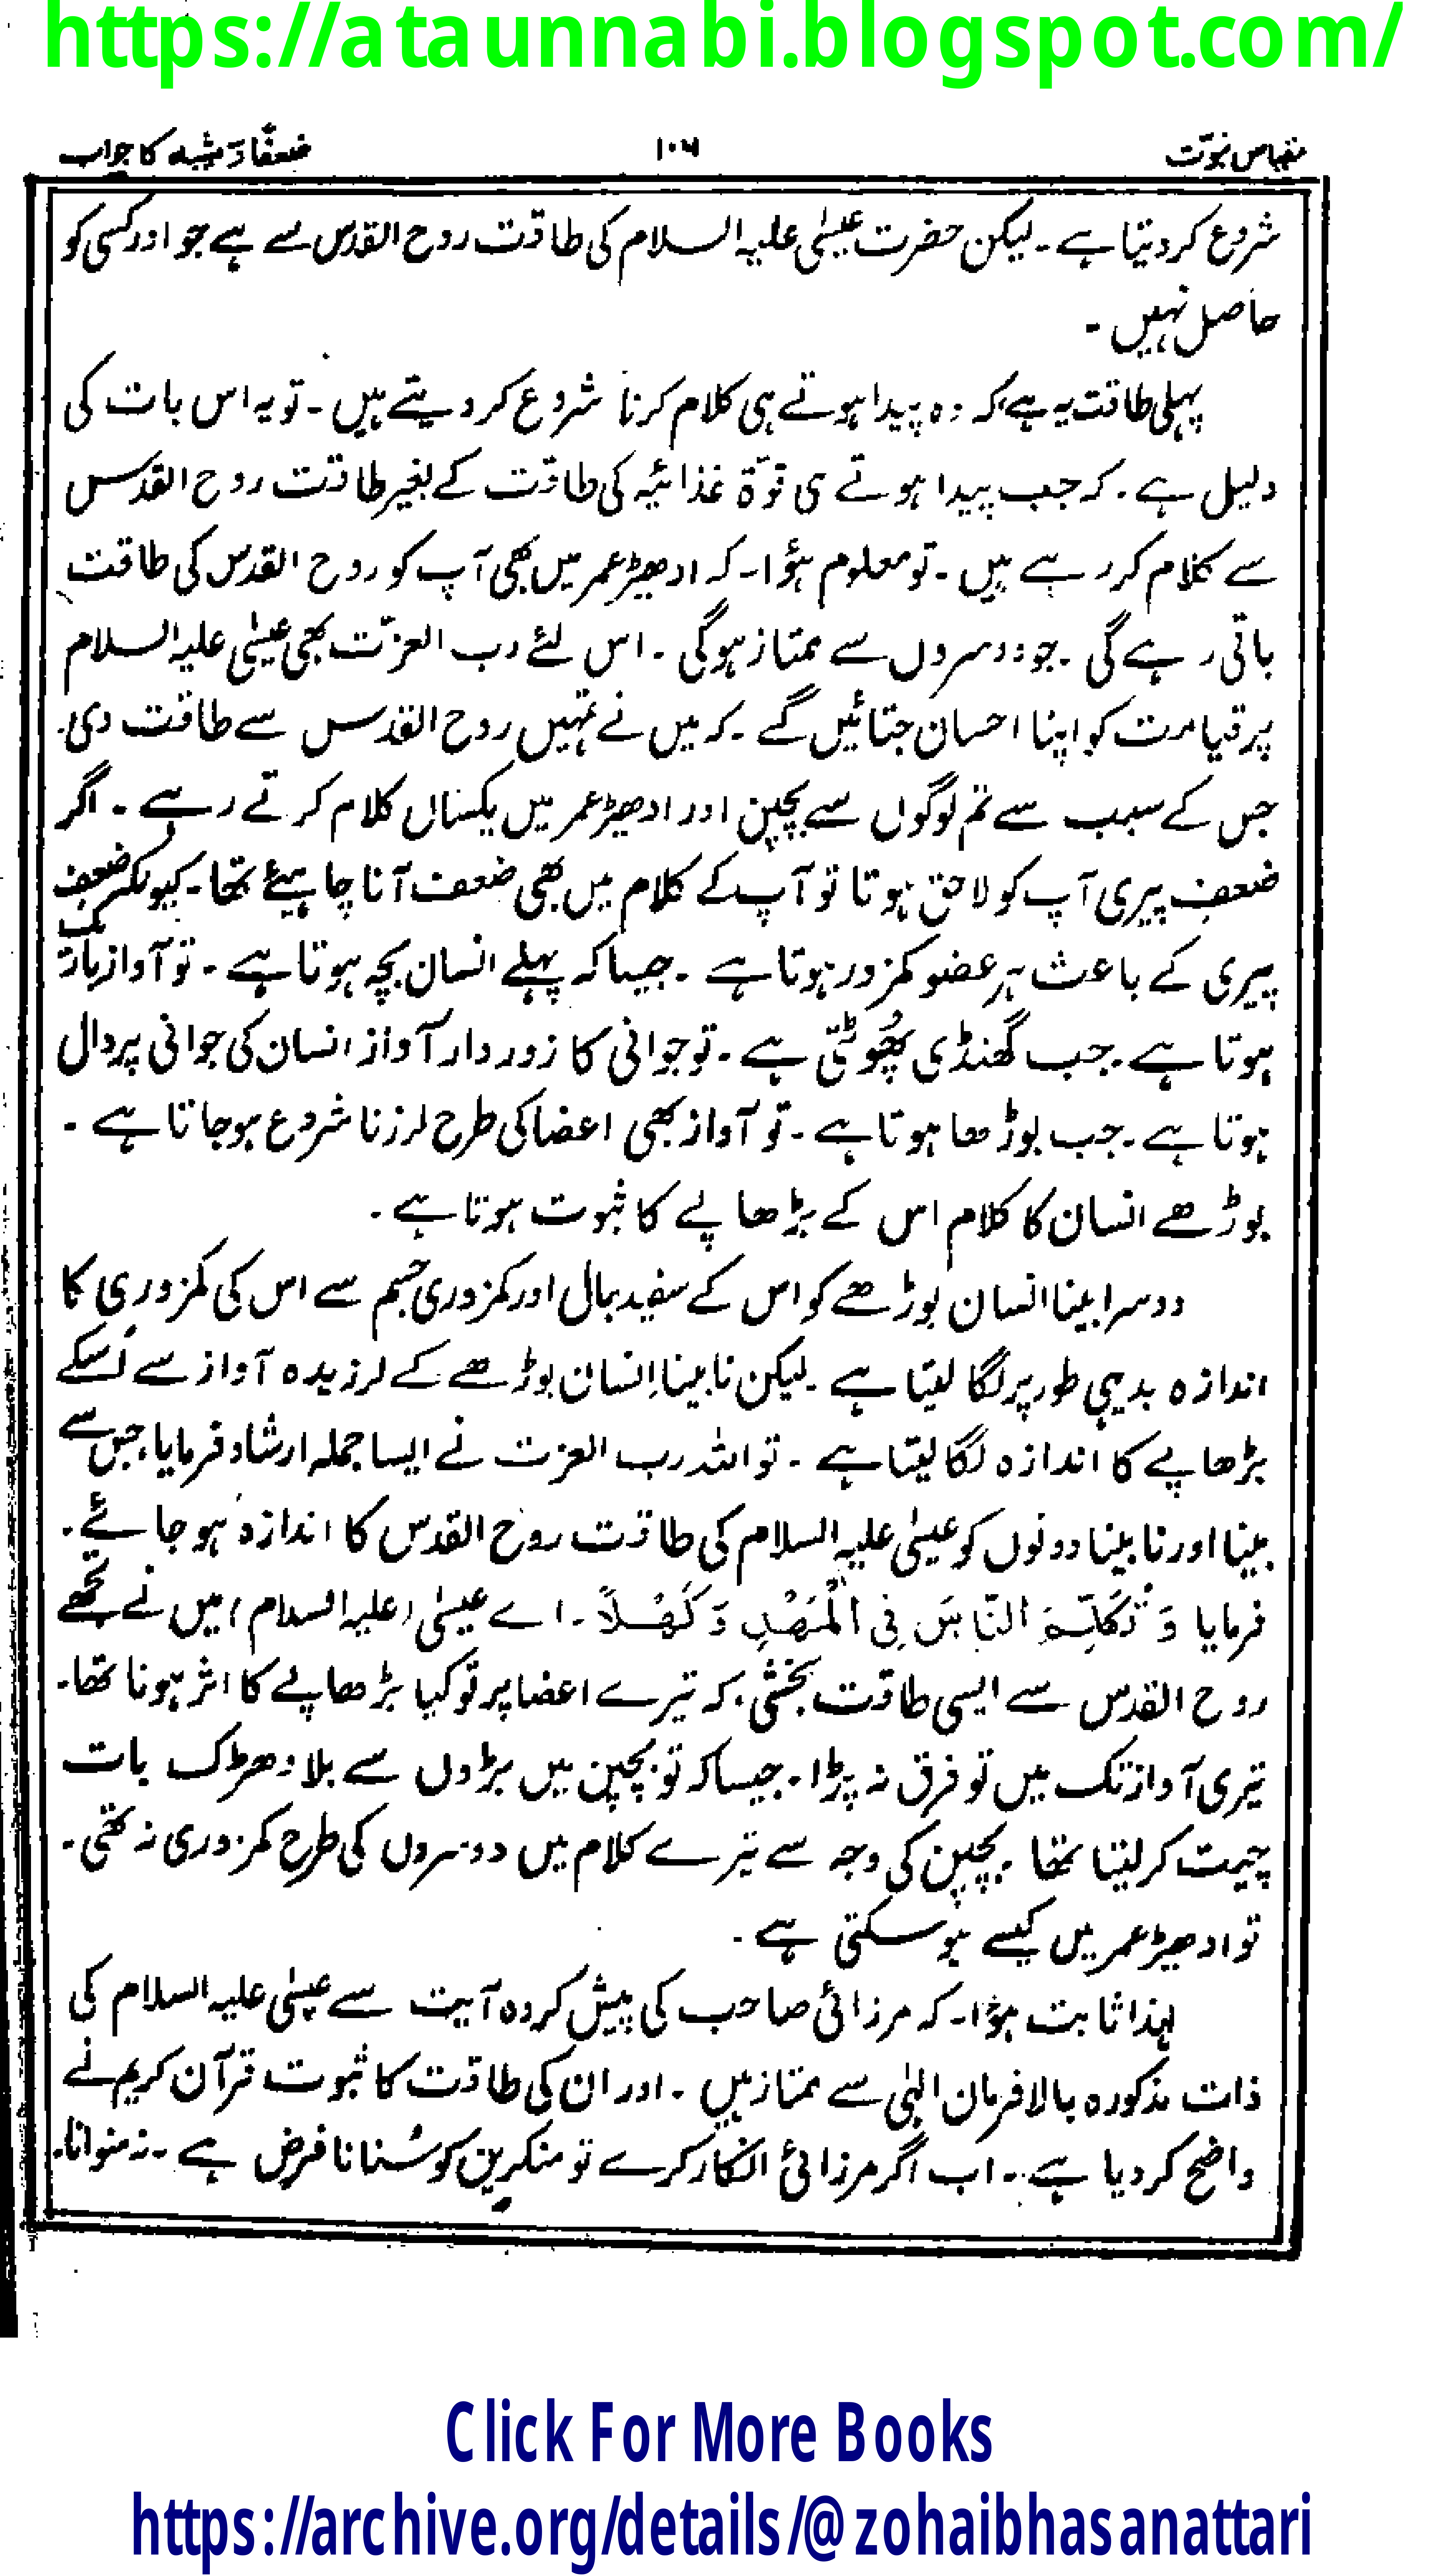 https://ataunnabi.blogspot.com/
مقیاس نبوّت ۱۰۶ ضعفًا وَّ شیبہ کا جواب
شروع کر دیتا ہے ۔ لیکن حضرت عیسٰی علیہ السلام کی طاقت روح القدس سے ہے جو اور کسی کو
حاصل نہیں ۔
پہلی طاقت یہ ہے کہ وہ پیدا ہوتے ہی کلام کرنا شروع کر دیتے ہیں ۔ تو یہ اس بات کی
دلیل ہے ۔ کہ جب پیدا ہوتے ہی قوّۃ غذائیہ کی طاقت کے بغیر طاقت روح القدس
سے کلام کر رہے ہیں ۔ تو معلوم ہؤا ۔ کہ ادھیڑ عمر میں بھی آپ کو روح القدس کی طاقت
باقی رہے گی ۔ جو دوسروں سے ممتاز ہوگی ۔ اس لئے رب العزّت بھی عیسٰی علیہ السلام
پر قیامت کو اپنا احسان جتائیں گے ۔ کہ میں نے تمہیں روح القدس سے طاقت دی ۔
جس کے سبب سے تم لوگوں سے بچپن اور ادھیڑ عمر میں یکساں کلام کرتے رہے ۔ اگر
ضعفِ پیری آپ کو لاحق ہوتا تو آپ کے کلام میں بھی ضعف آنا چاہیئے تھا ۔ کیونکہ ضعفِ
پیری کے باعث ہر عضو کمزور ہوتا ہے ۔ جیسا کہ پہلے انسان بچہ ہوتا ہے ۔ تو آواز باریک
ہوتا ہے ۔ جب گھنڈی پھُوٹتی ہے ۔ تو جوانی کا زور دار آواز انسان کی جوانی پر دال
ہوتا ہے ۔ جب بوڑھا ہوتا ہے ۔ تو آواز بھی اعضا کی طرح لرزنا شروع ہو جاتا ہے ۔
بوڑھے انسان کا کلام اس کے بڑھاپے کا ثبوت ہوتا ہے ۔
دوسرا بینا انسان بوڑھے کو اس کے سفید بال اور کمزوری جسم سے اس کی کمزوری کا
اندازہ بدیہی طور پر لگا لیتا ہے ۔ لیکن نابینا اِنسان بوڑھے کے لرزیدہ آواز سے اُسکے
بڑھاپے کا اندازہ لگا لیتا ہے ۔ تو اللہ رب العزت نے ایسا جملہ ارشاد فرمایا، جس سے
بینا اور نابینا دونوں کو عیسٰی علیہ السلام کی طاقت روح القدس کا اندازہ ہو جائے ۔
فرمایا وَ تُكَلِّمَ النَّاسَ فِی الْمَهْدِ وَ كَهْلاً ۔ اے عیسٰی (علیہ السلام) میں نے تجھے
روح القدس سے ایسی طاقت بخشی، کہ تیرے اعضا پر تو کیا بڑھاپے کا اثر ہونا تھا ۔
تیری آواز تک میں تو فرق نہ پڑا ۔ جیسا کہ تو بچپن میں بڑوں سے بلا دھڑک بات
چیت کر لیتا تھا ۔ بچپن کی وجہ سے تیرے کلام میں دوسروں کی طرح کمزوری نہ تھی ۔
تو ادھیڑ عمر میں کیسے ہو سکتی ہے ۔
لہذا ثابت ہؤا ۔ کہ مرزائی صاحب کی پیش کردہ آیت سے عیسٰی علیہ السلام کی
ذات مذکورہ بالا فرمان الہٰی سے ممتاز ہیں ۔ اور ان کی طاقت کا ثبوت قرآن کریم نے
واضح کر دیا ہے ۔ اب اگر مرزائی انکار کرے تو منکرین کو سُنانا فرض ہے ۔ نہ منوانا ۔
Click For More Books
https://archive.org/details/@zohaibhasanattari